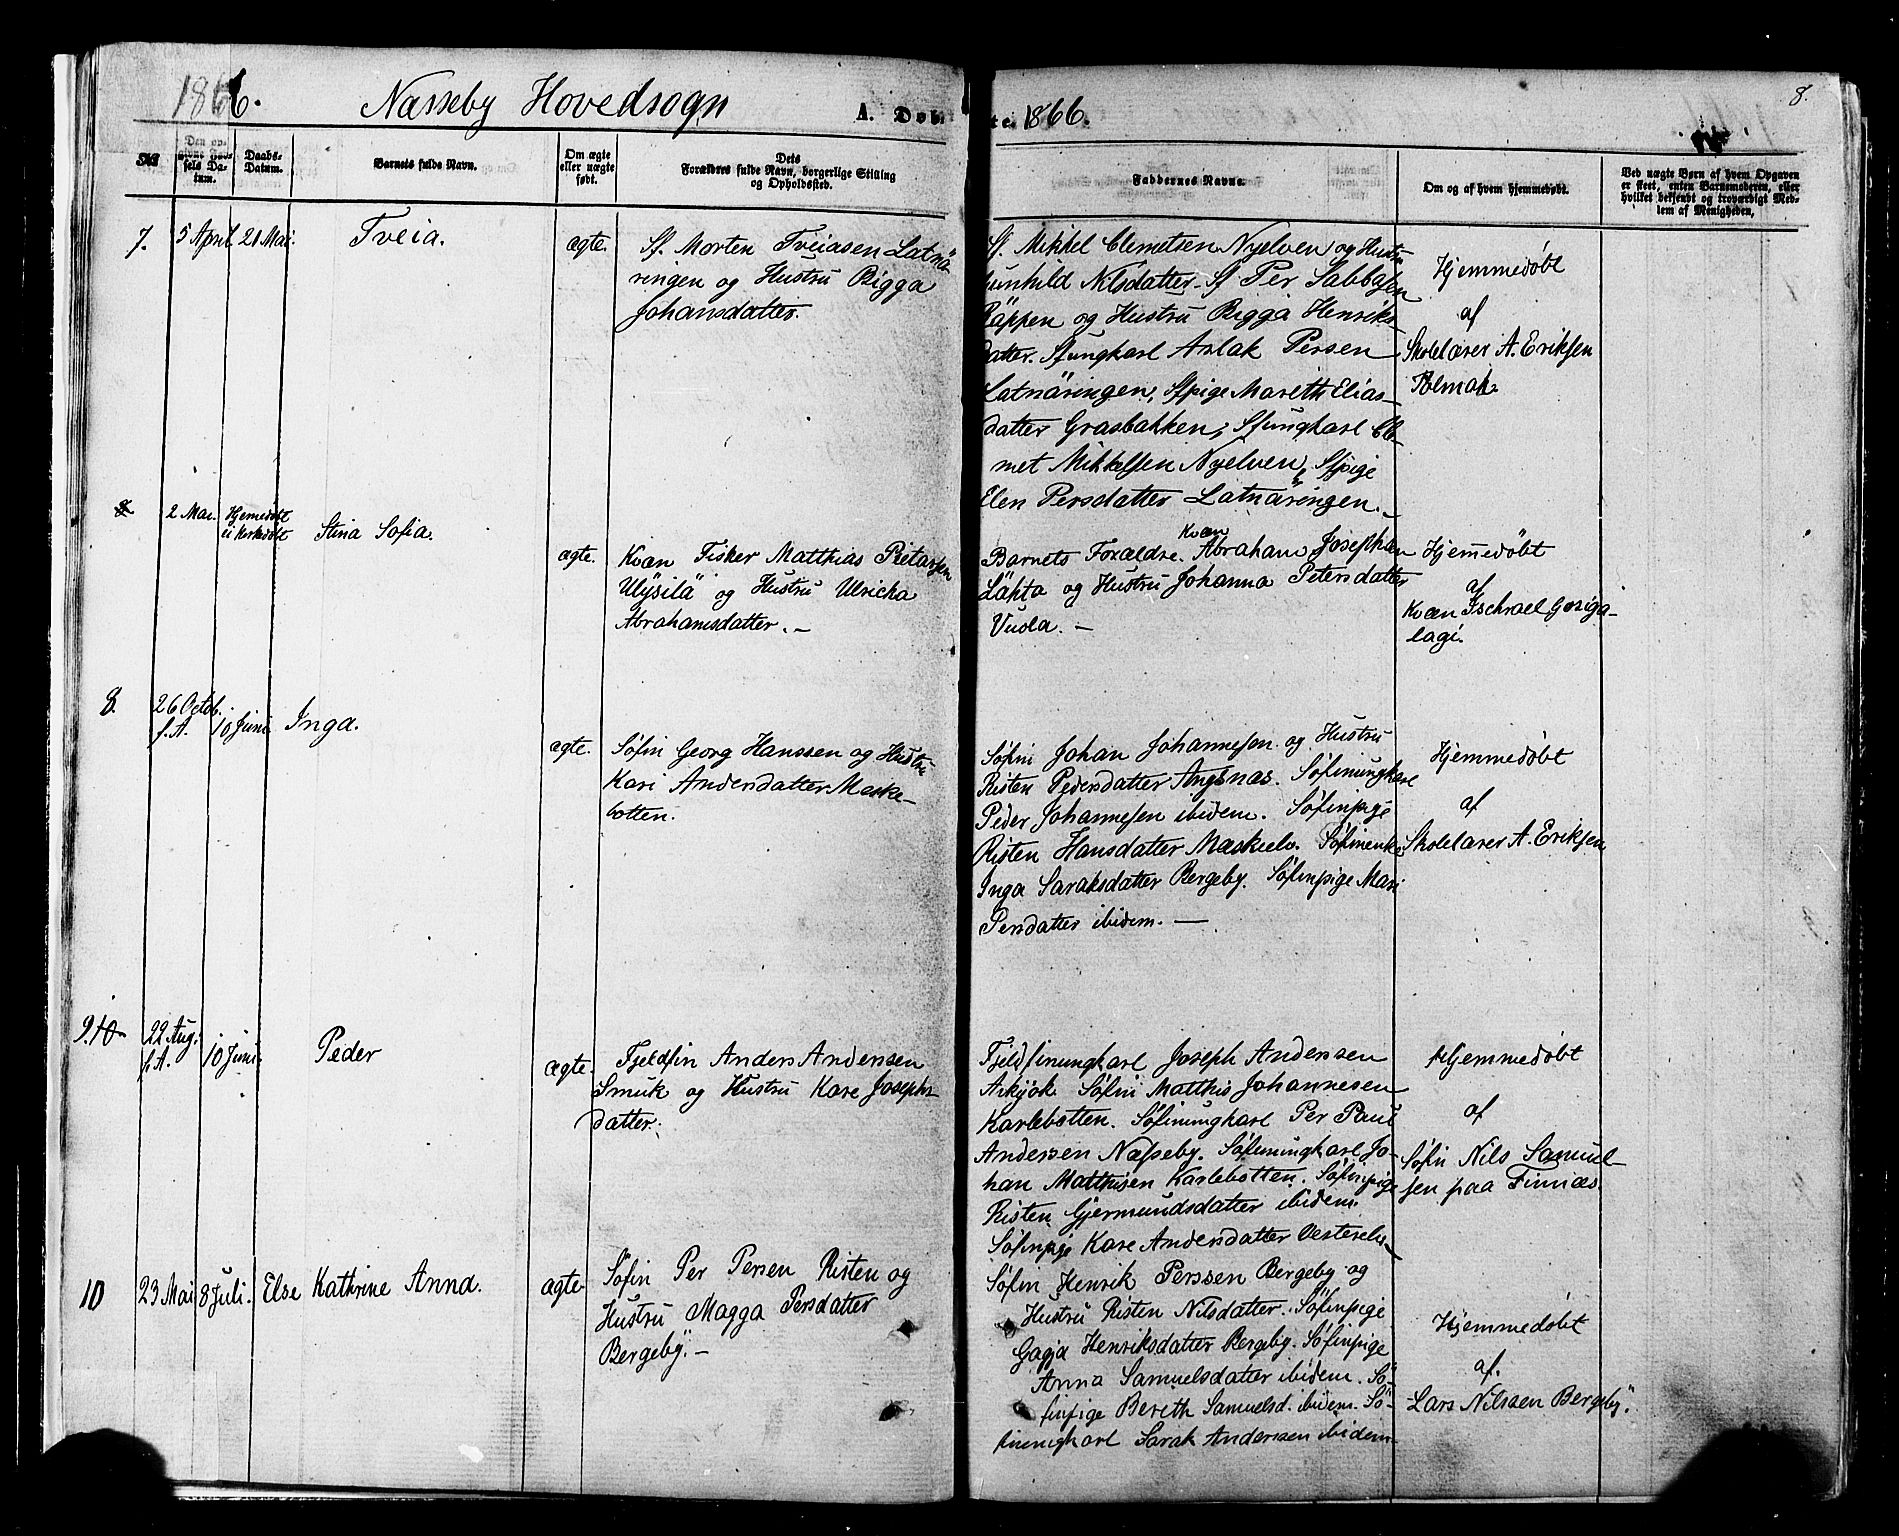 1866. Næsseby Hovedsogn A. Døb-
te. 1866. 8.
Den op-
givne Fød-
sels Da-
tum.
Daabs-
Datum.
Barnets fulde Navn.
Om ægte
eller uægte
født.
Dets
Forældres fulde Navn, borgerlige Stilling
og Opholdssted.
Faddernes Navne.
Om og af hvem hjemmedøbt.
Ved uægte Børn af hvem Opgaven
er skeet, enten Barnemoderen, eller
hvilket bekjendt og troværdigt Med-
lem af Menigheden.
7. 5 April. 21 Mai. Tveia. ægte.
Sf. Morten Tveiasen Latnä-
ringen og Hustru Bigga
Johansdatter.
Sf. Mikkel Clemetsen Nyelven og Hustru
Gunhild Nilsdatter. Sf Per Sabbasen
og Hustru Bigga Henriks-
datter. Sfungkarl Aslak Persen
Latnäringen, Sfpige Mareth Elias-
datter Grasbakken, Sfungkarl Cle-
met Mikkelsen Nyelven, Sfpige
Elen Persdatter Latnäringen.
Hjemmedøbt
af
Skolelærer A. Eriksen
Polmak.
8. 2 Mai. Hjemedöbt
ei kirkedöbt
Stina Sofia. ægte.
Kvæn Fisker Matthias Pietarsen
Ulÿsilä og Hustru Ulricka
Abrahamsdatter. —
Kvæn
Barnets Forældre. Abraham Josephsen
Lähta og Hustru Johanna Petersdatter
Vuola. —
Hjemmedøbt
af
Kvæn Ischrael Gosiga-
lagi.
8. 26 Octob.
f. A. 10 Juni. Inga. ægte.
Söfin Georg Hanssen og Hustru
Kari Andersdatter Meske-
botten.
Söfin Johan Johannesen og Hustru
Risten Pedersdatter Angsnæs. Söfinungkarl
Peder Johannesen ibidem. Söfinpige
Risten Hansdatter Mæskelv. Söfinenke
Inga Saraksdatter Bergeby. Söfinpige Mari
Persdatter ibidem. —
Hjemmedøbt
af
Skolelærer A. Eriksen
9. 10 22 Aug.
f. A. 10 Juni. Peder ægte.
Fjeldfin Anders Andersen
Smuk og Hustru Kare Josephs-
datter.
Fjeldfinungkarl Joseph Anderssen
Arkjok Söfin Matthis Johannesen
Karlebotten. Söfinungkarl Per Paul
Andersen Næsseby. Söfinungkarl Jo-
han Matthisen Karlebotten. Söfinpige
Risten Gjermundsdatter ibidem.
Söfinpige Kare Andersdatter Vesterelv
Hjemmedöbt
af
Söfin Nils Samuel-
sen paa Finnæs.
10 23 Mai 8 Juli. Else Kathrine Anna. ægte
Söfin Per Persen Risten og
Hustru Magga Persdatter
Bergebÿ. —
Söfin Henrik Perssen Bergeby og
Hustru Risten Nilsdatter. Söfinpige
Gagja Henriksdatter Bergeby. Söfinpige
Anna Samuelsdatter ibidem. Sö-
finpige Bereth Samuelsd. ibidem. Sö-
finungkarl Sarak Anderssen ibidem
Hjemmedöbt
af.
Lars Nilssen Bergebÿ.